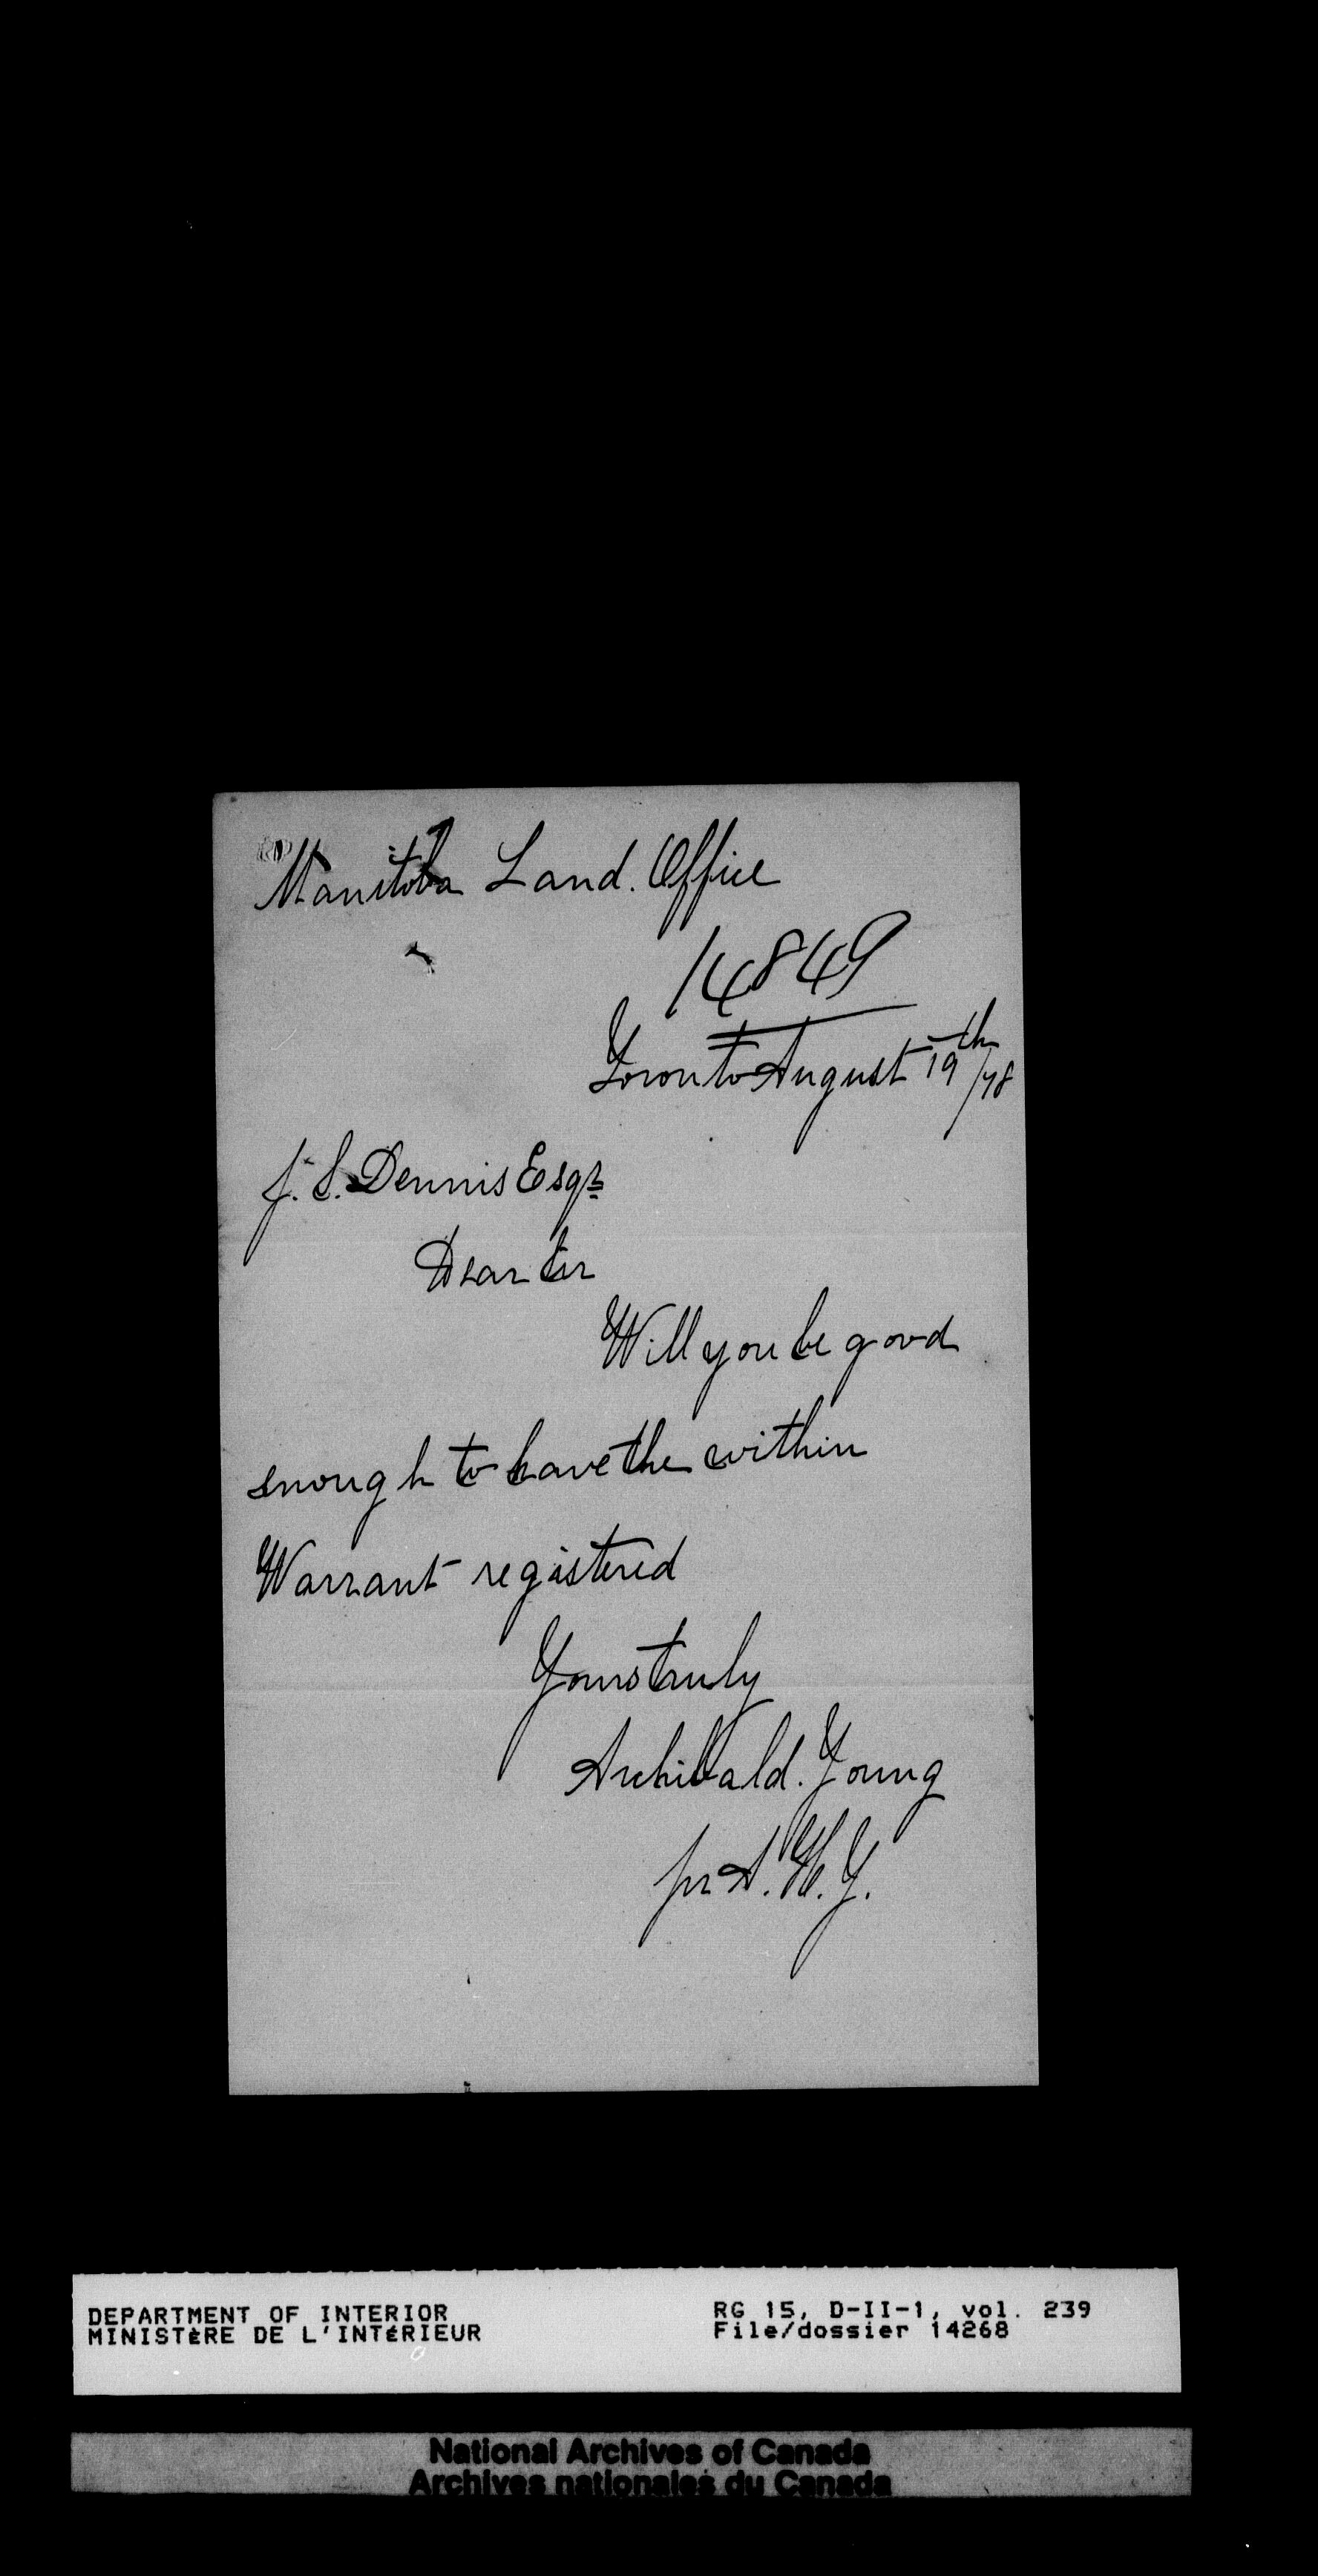 Manitoba Land. Office
14849
Toronto August 19th/78
J. S. Dennis Esqr
Dear Sir
Will you be good
enough to have the within
Warrant registered
Yours truly
Archibald. Young
per A. H. Y.
DEPARTMENT OF INTERIOR
MINISTÈRE DE L'INTÉRIEUR
RG 15, D-II-1, vol. 239
File/dossier 14268
National Archives of Canada
Archives nationales du Canada